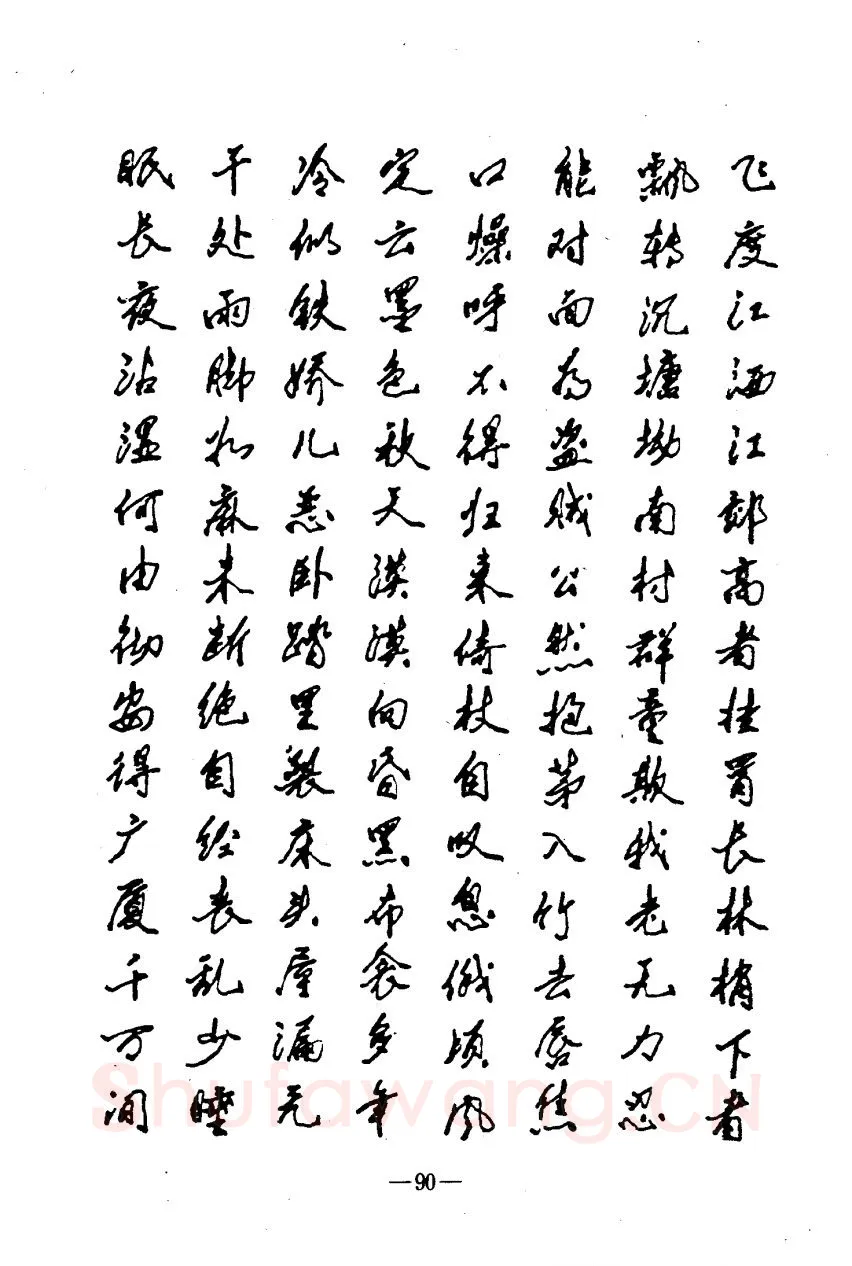 飞度江洒江郊高者挂罥长林梢下者
飘转沉塘坳南村群童欺我老无力忍
能对面为盗贼公然抱茅入竹去唇焦
口燥呼不得归来倚杖自叹息俄顷风
定云墨色秋天漠漠向昏黑布衾多年
冷似铁娇儿恶卧踏里裂床头屋漏无
干处雨脚如麻未断绝自经丧乱少睡
眠长夜沾湿何由彻安得广厦千万间
—90—
Shufawang.CN